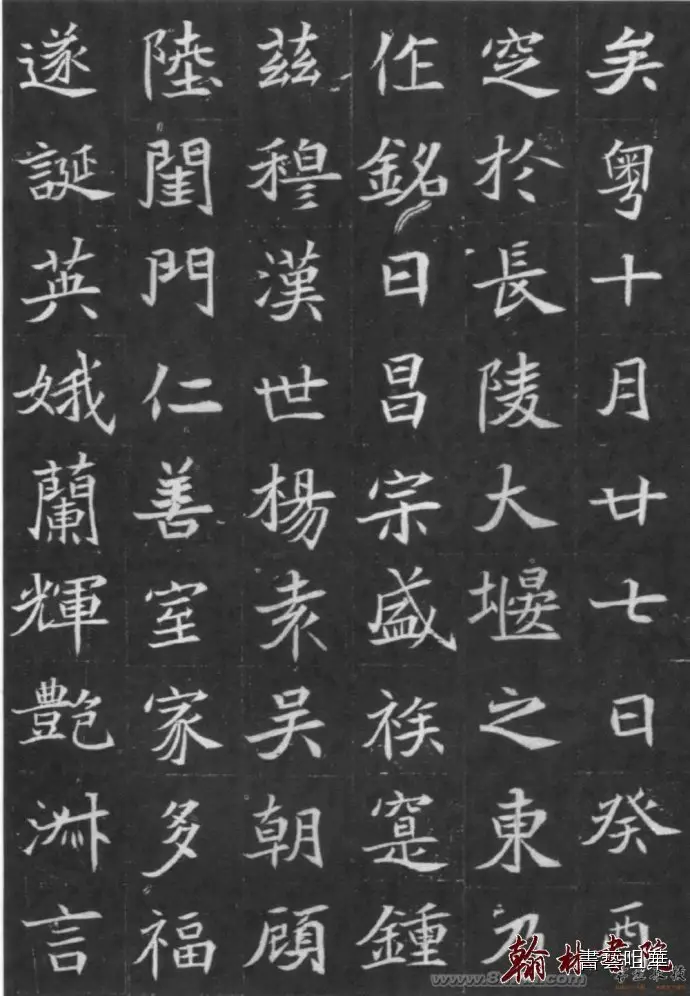 矣粤十月廿七日癸酉
窆於長陵大堰之東乃
作銘曰昌宗盛族寔鍾
茲穆漢世楊袁吴朝顧
陸閨門仁善室家多福
遂誕英娥蘭輝艷淑言
翰林書院
書藝咀華